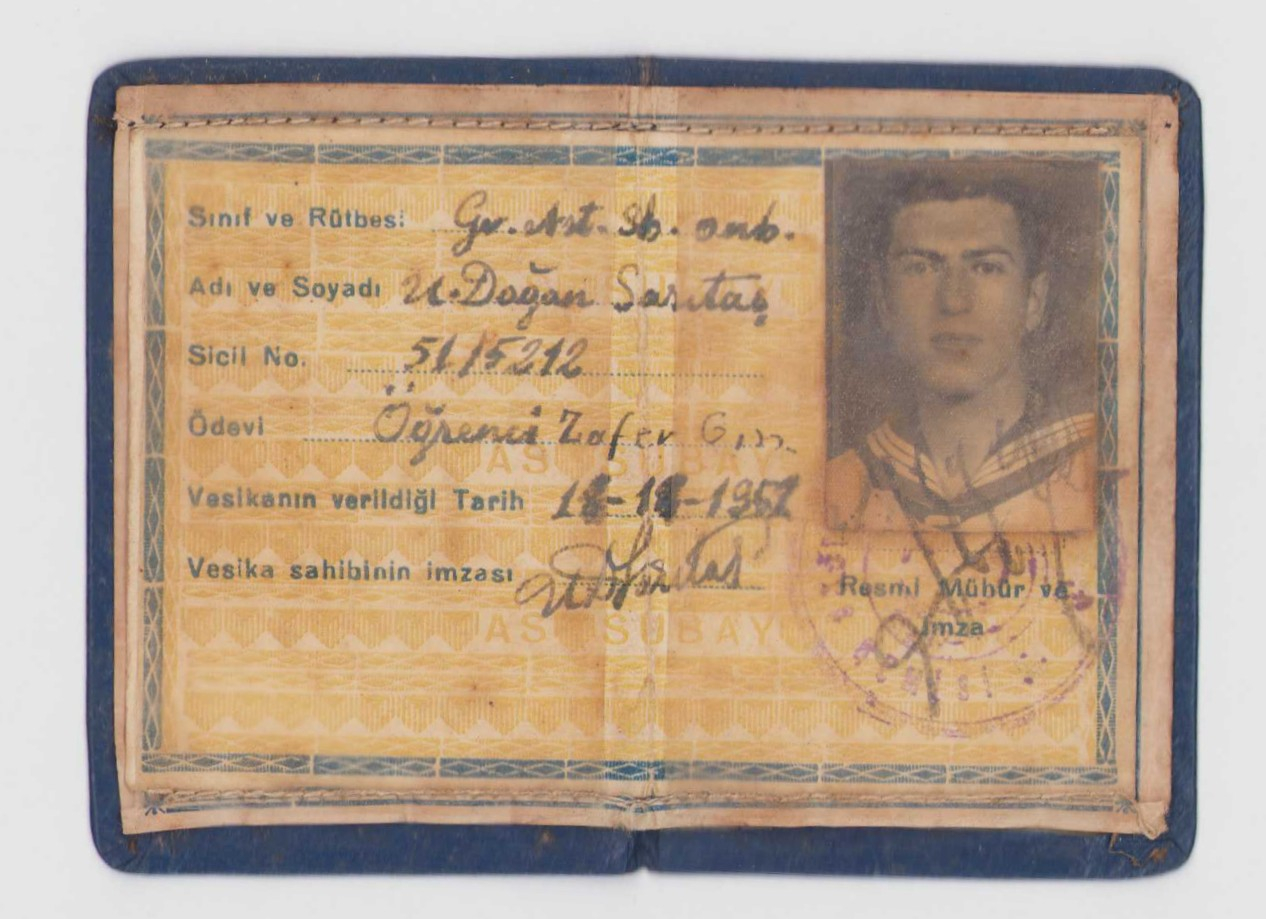 Sınıf ve Rütbesi Gv. Ast. Sb. onb.
Adı ve Soyadı U. Doğan Sarıtaş
Sicil No. 51/5212
Ödevi Öğrenci Zafer Gm.
AS SUBAY
Vesikanın verildiği Tarih
Vesika sahibinin imzası
Resmî Mühür ve
İmza
AS SUBAY